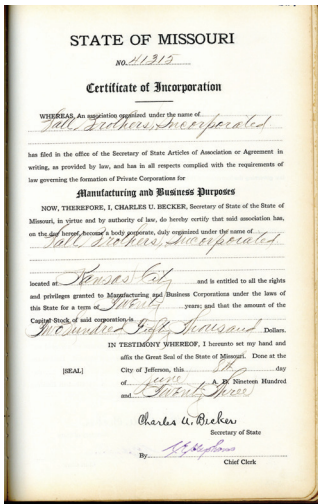 STATE OF MISSOURI
NO. 41315
Certificate of Incorporation
WHEREAS, An association organized under the name of
Brothers, Incorporated
has filed in the office of the Secretary of State Articles of Association or Agreement in
writing, as provided by law, and has in all respects complied with the requirements of
law governing the formation of Private Corporations for
Manufacturing and Business Purposes
NOW, THEREFORE, I, CHARLES U. BECKER, Secretary of State of the State of
Missouri, in virtue and by authority of law, do hereby certify that said association has,
on the day hereof, become a body corporate, duly organized under the name of
Brothers, Incorporated
located at Kansas City and is entitled to all the rights
and privileges granted to Manufacturing and Business Corporations under the laws of
this State for a term of Twenty years; and that the amount of the
Capital Stock of said corporation is
Two Hundred Fifty Thousand Dollars.
IN TESTIMONY WHEREOF, I hereunto set my hand and
affix the Great Seal of the State of Missouri. Done at the
[SEAL] City of Jefferson, this 8th day
of June A. D. Nineteen Hundred
and Twenty Three
Charles U. Becker
Secretary of State
By
Chief Clerk